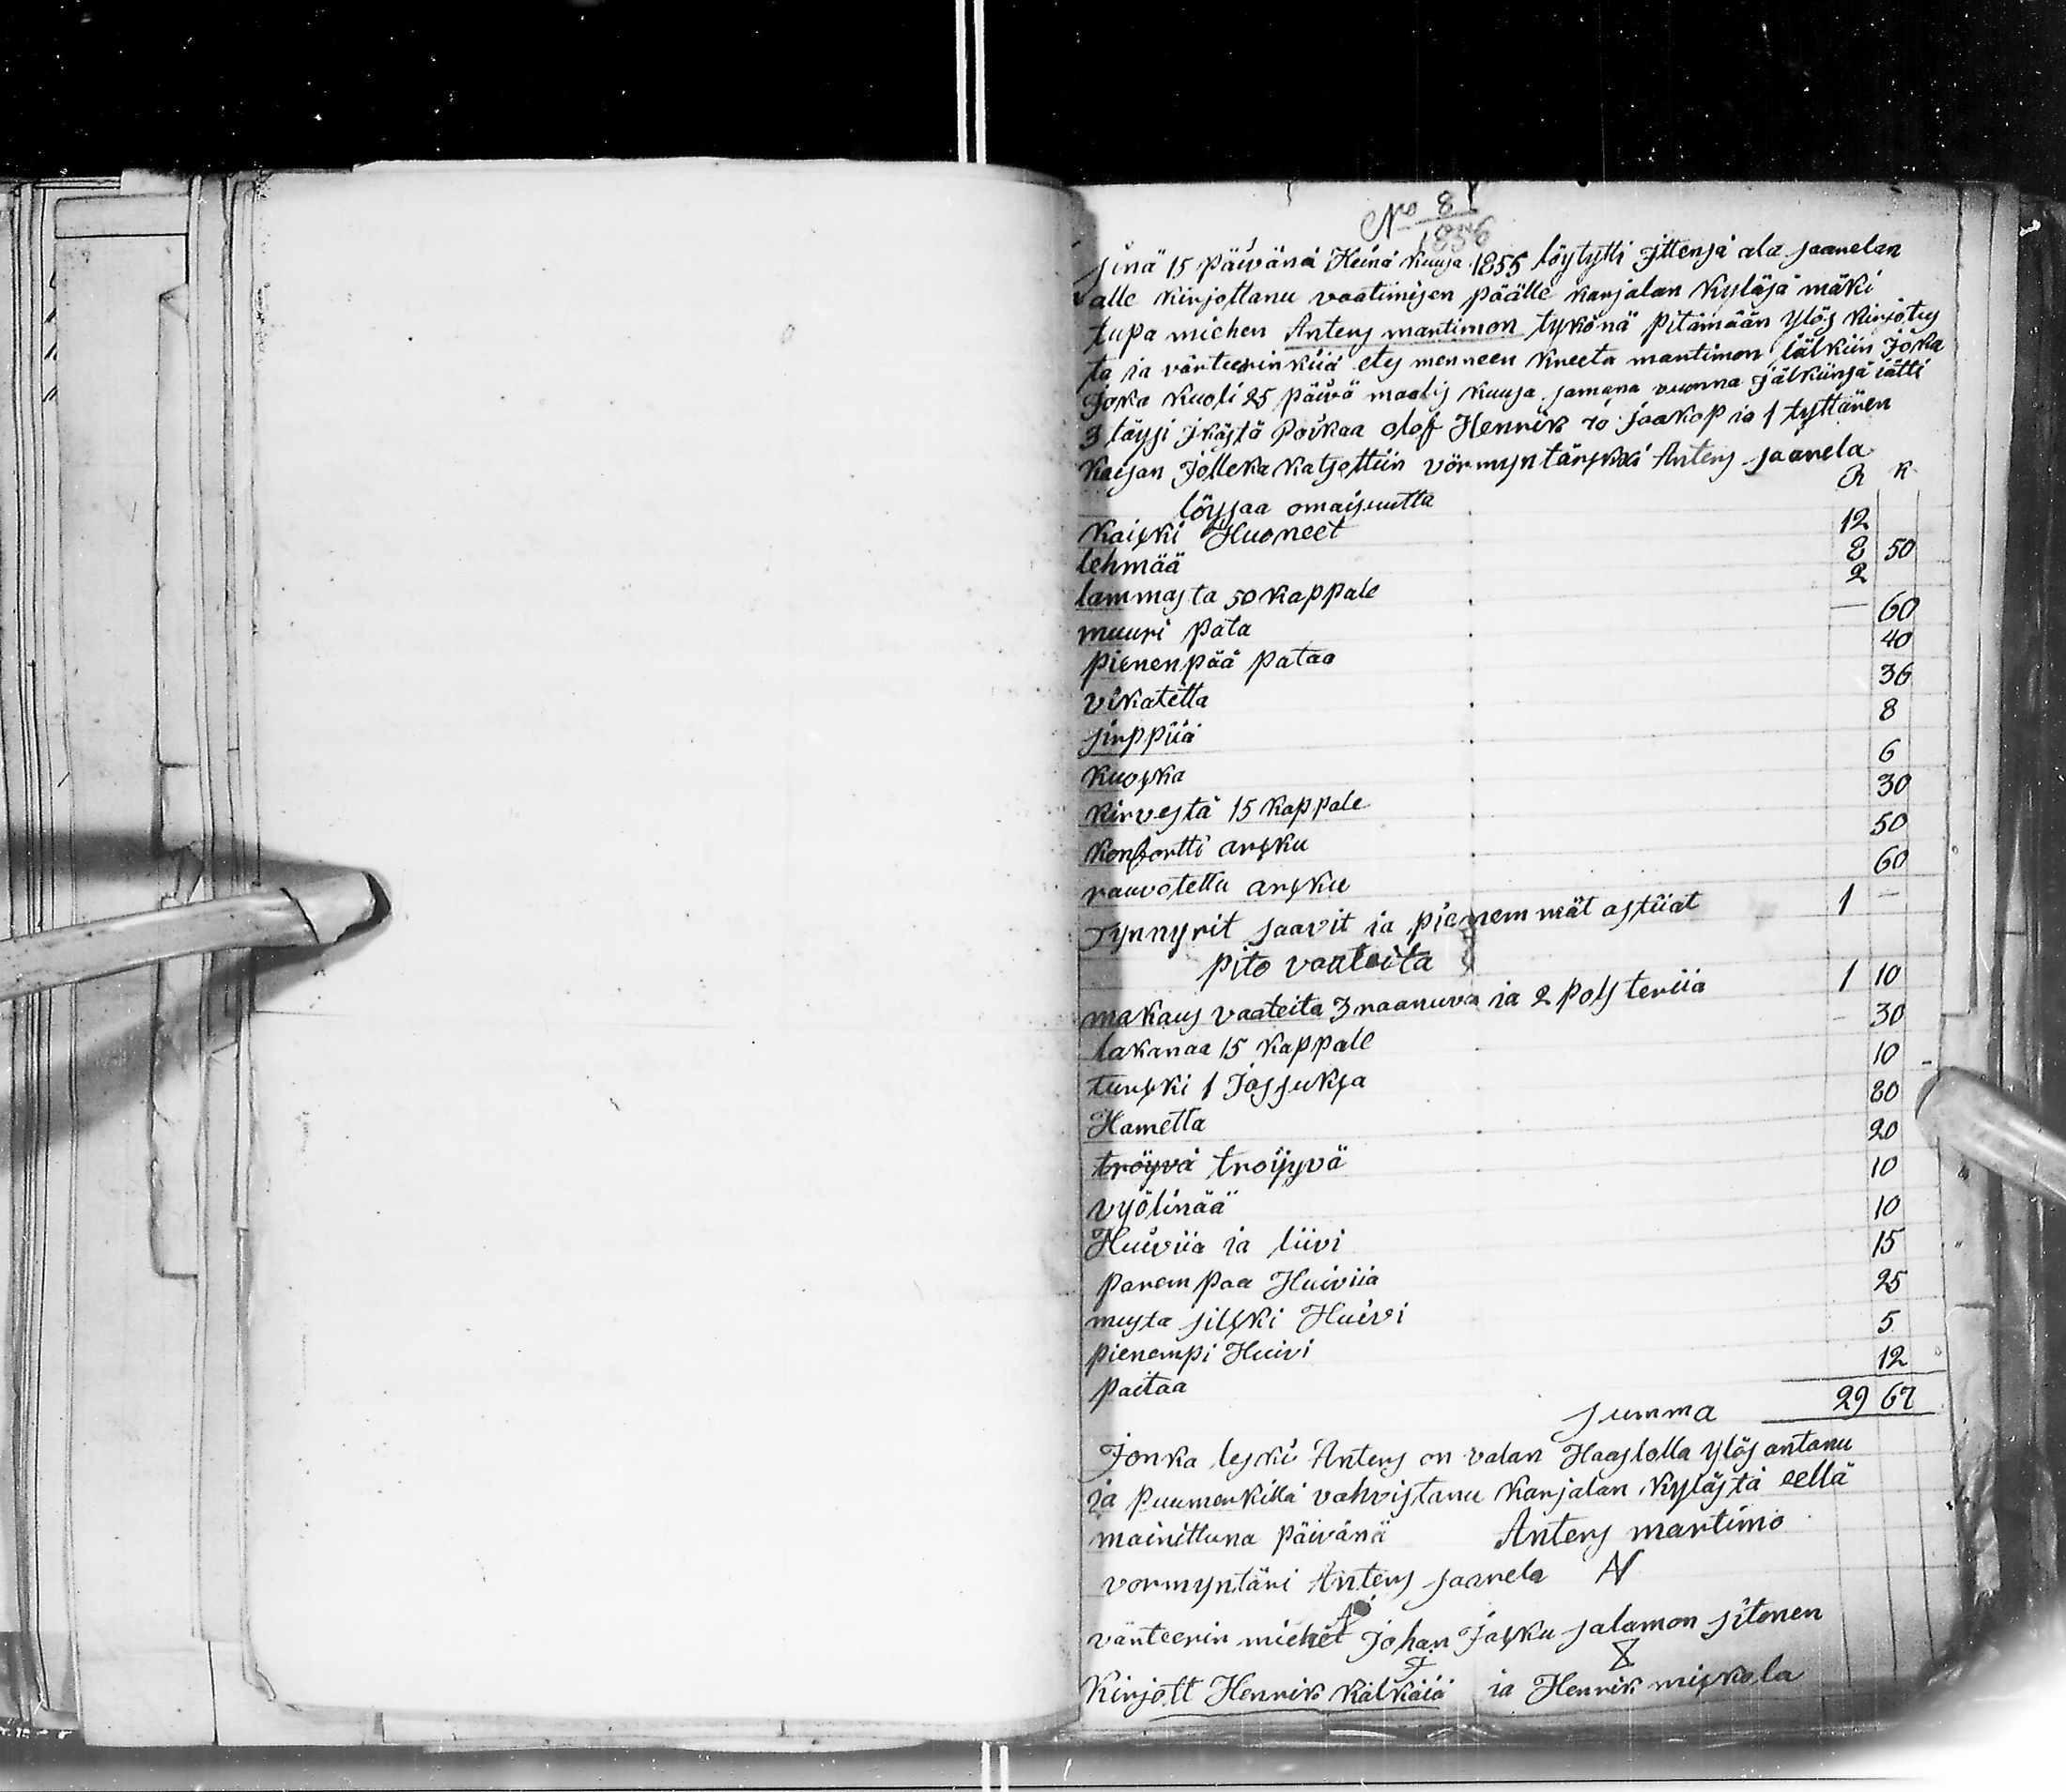 No 8
1856
sinä 15 päivänä Heinä kuusa 1855 löytytti Jttensä ala saarelan
alle kirjottanu vaatimisen päälle karjalan kyläsä mäki
tupa miehen Anters martimon tykönä pitämään ylös kirjotus
ta ia värteerinkiiä etes menneen kreeta martimon iälkiin Joka
Joka kuoli 25 päivä maalis kuusa samana vuonna Jälkiinsä iätti
3 täysi ikästä poikaa olof Henrik ia jaakop ia 1 tyttären
kaisan Jolleka katsottiin vörmyntäriksi Anters saarela
R K
löysaa omaisuutta
kaiski Huoneet 12
lehmää 8 50
lammasta 50 kappale 2
muuri pata — 60
pienenpää pataa 40
vikatetta 36
sirppiiä 8
kuoska 6
kirvestä 15 kappale 30
konfortti arsku 50
rauvotettu arsku 60
Tynnyrit saavit ia pienemmät astiiat 1 —
pito vaateita
makaus vaateita 3 raanuva ia 2 polsteriia 1 10
lakanaa 15 kappale — 30
turski 1 Jossuksa 10
Hametta 80
tröyvä troijyvä 20
vyölinää 10
Huiviia ia liivi 10
parempaa Huiviia 15
musta silski Huivi 25
pienempi Huivi 5
paitaa 12
summa 29 67
Jonka leski Anters on valan Haastolla ylös antanu
ia puumerkillä vahvistanu karjalan kylästä eellä
mainittuna päivänä Anters martimo
vormyntäri Anters saarela N
värteerin miehet Johan Jasku salamon sitonen
Kirjott Henrik kälkäiä ia Henrik miskola